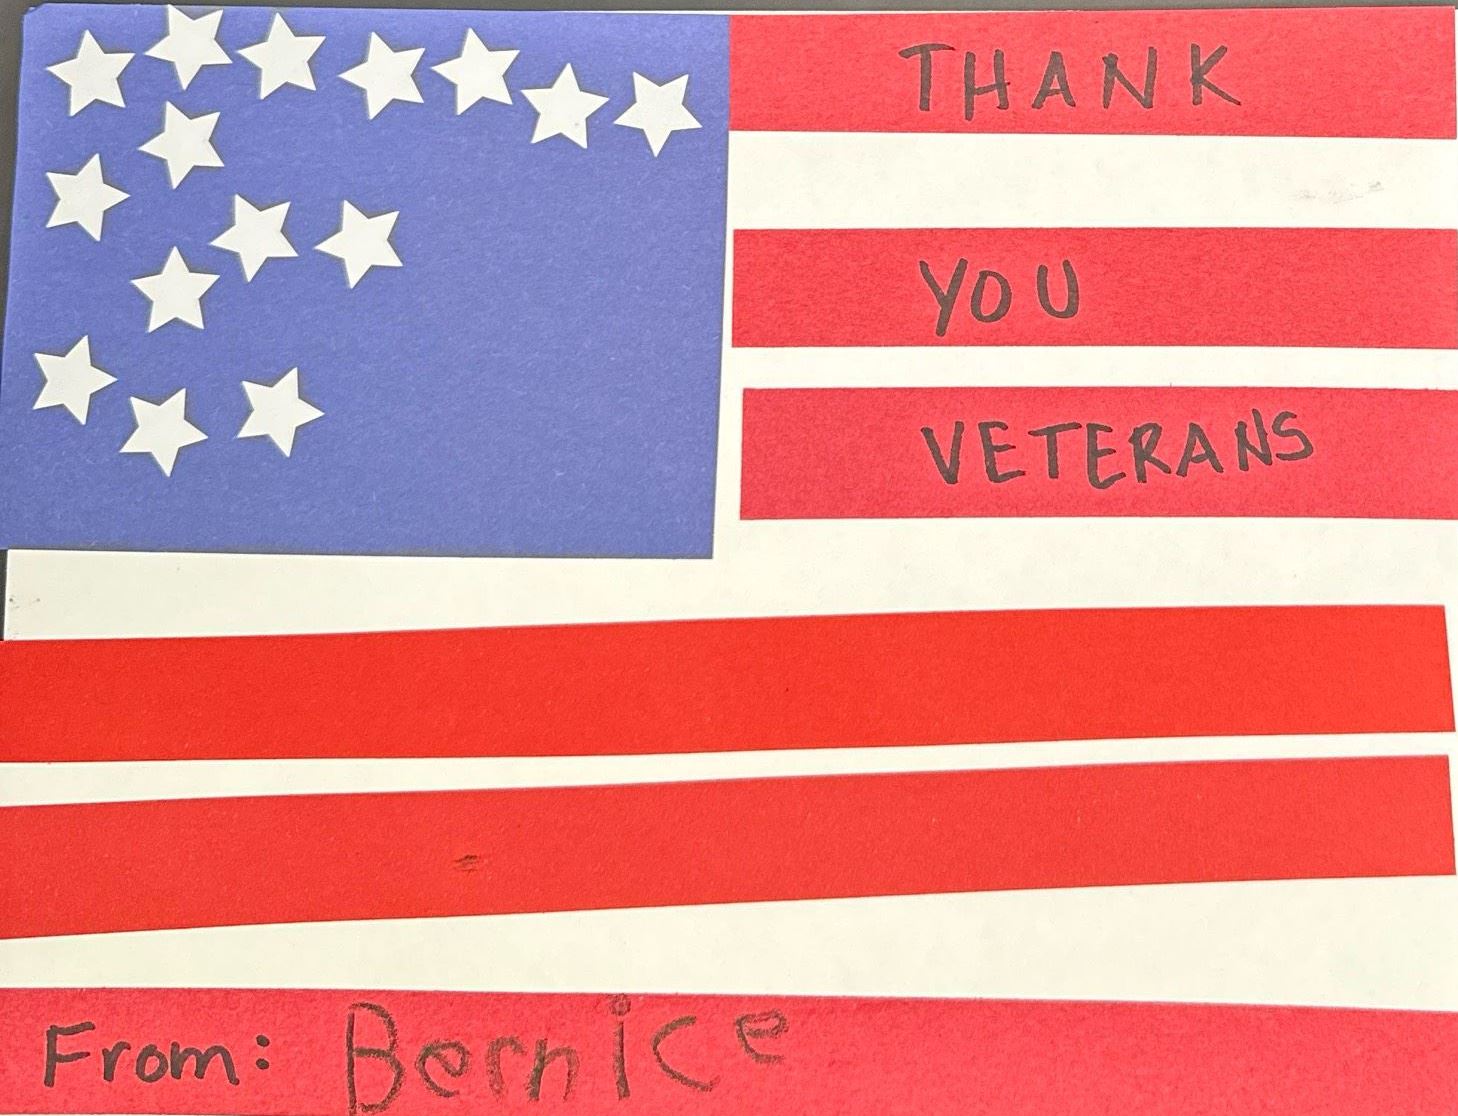 THANK
YOU
VETERANS
From: Bernice